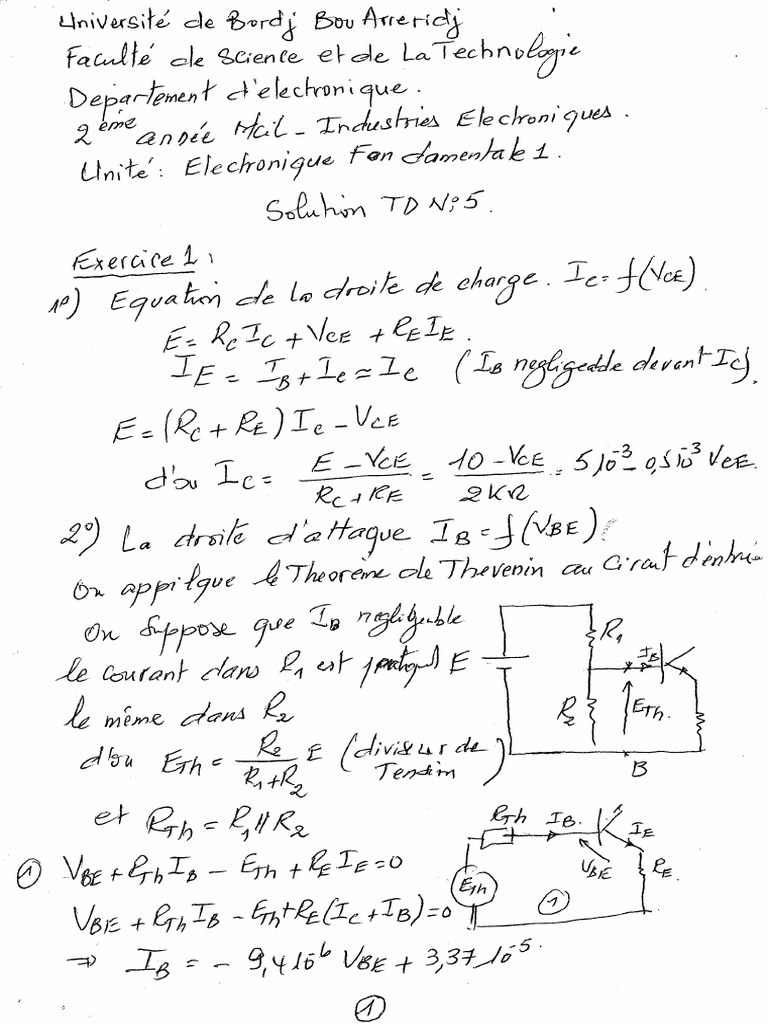 Université de Bordj Bou Arreridj
Faculté de Science et de La Technologie
Departement d'electronique.
2ème année Mcil - Industries Electroniques.
Unité: Electronique Fondamentale 1.
Solution TD N:5.
Exercice 1:
1º) Equation de la droite de charge. Ic = f(VCE).
E = Rc Ic + VCE + RE IE.
IE = IB + Ic ≈ Ic (IB negligeable devant Ic).
E = (Rc + RE) Ic - VCE
d'où Ic = (E - VCE)/(Rc + RE) = (10 - VCE)/(2KΩ) = 5 10⁻³ - 0,5 10⁻³ VCE.
2º) La droite d'attaque IB = f(VBE)
On applique le Theorème de Thevenin au circuit d'entrée
On suppose que IB negligeable
le courant dans R1 est
le même dans R2
d'où ETh = R2/(R1+R2) E (diviseur de Tension)
et RTh = R1 // R2
① VBE + RTh IB - ETh + RE IE = 0
VBE + RTh IB - ETh + RE (Ic + IB) = 0
⇒ IB = - 9,4 10⁻⁶ VBE + 3,37 10⁻⁵.
E
R1
R2
IB
ETh.
B
RTh
IB.
IE
VBE
RE.
ETh
①
①